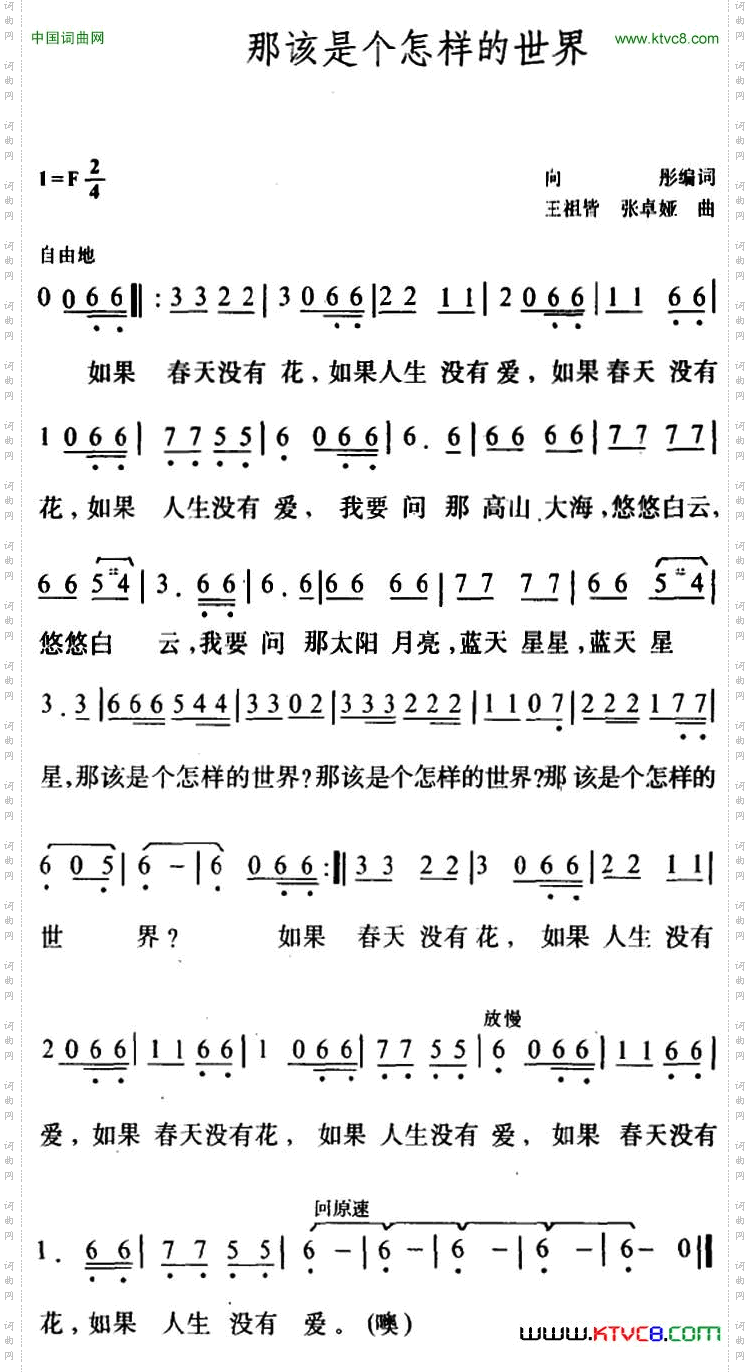 中国词曲网
那该是个怎样的世界
www.ktvc8.com
1=F 2/4
向 彤编词
王祖皆 张卓娅 曲
自由地
0 0 6 6 ‖: 3 3 2 2 | 3 0 6 6 | 2 2 1 1 | 2 0 6 6 | 1 1 6 6 |
如果 春天没有 花，如果人生 没有 爱，如果 春天 没有
1 0 6 6 | 7 7 5 5 | 6 0 6 6 | 6 . 6 | 6 6 6 6 | 7 7 7 7 |
花，如果 人生没有 爱、 我要 问 那 高山、大海，悠悠白云，
6 6 5 4 | 3 . 6 6 | 6 . 6 | 6 6 6 6 | 7 7 7 7 | 6 6 5 4 |
悠悠白 云，我要 问 那太阳 月亮，蓝天 星星，蓝天 星
3 . 3 | 6 6 6 5 4 4 | 3 3 0 2 | 3 3 3 2 2 2 | 1 1 0 7 | 2 2 2 1 7 7 |
星，那该是个怎样的世界？那该是个怎样的世界？那 该是个怎样的
6 0 5 | 6 - | 6 0 6 6 :‖ 3 3 2 2 | 3 0 6 6 | 2 2 1 1 |
世 界？ 如果 春天 没有花， 如果 人生 没有
放慢
2 0 6 6 | 1 1 6 6 | 1 0 6 6 | 7 7 5 5 | 6 0 6 6 | 1 1 6 6 |
爱，如果 春天没有花， 如果 人生没有 爱， 如果 春天没有
回原速
1 . 6 6 | 7 7 5 5 | 6 - | 6 - | 6 - | 6 - | 6 - 0 ‖
花，如果 人生 没有 爱。(噢)
www.KTVC8.com